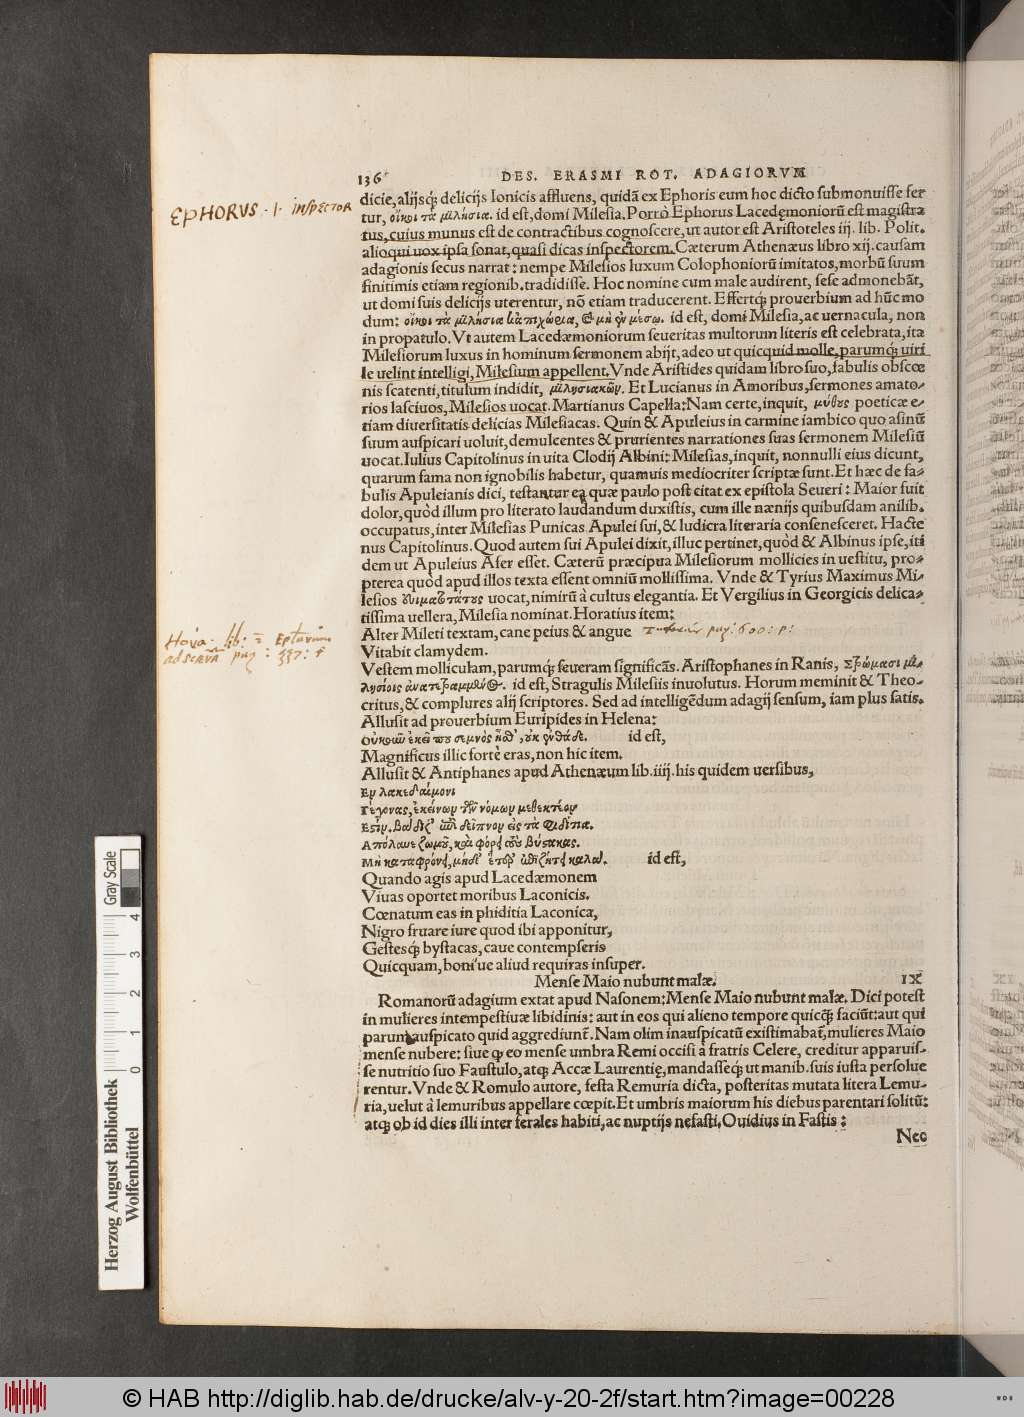 136 DES. ERASMI ROT. ADAGIORVM
dicie, alijsq́; delicijs Ionicis affluens, quidã ex Ephoris eum hoc dicto submonuisse fer
EPHORVS . I . INSPECTOR
tur, οἴκοι τὰ μιλήσια. id est, domi Milesia. Porrò Ephorus Lacedęmoniorũ est magistra
tus, cuius munus est de contractibus cognoscere, ut autor est Aristoteles iij. lib. Polit.
alioqui uox ipsa sonat, quasi dicas inspectorem. Cæterum Athenæus libro xij. causam
adagionis secus narrat: nempe Milesios luxum Colophoniorũ imitatos, morbũ suum
finitimis etiam regionib. tradidisse. Hoc nomine cum male audirent, sese admonebãt,
ut domi suis delicijs uterentur, nõ etiam traducerent. Effertq́; prouerbium ad hũc mo
dum: οἴκοι τὰ μιλήσια κἀπιχώρια, καὶ μὴ ἐν μέσῳ. id est, domi Milesia, ac uernacula, non
in propatulo. Vt autem Lacedæmoniorum seueritas multorum literis est celebrata, ita
Milesiorum luxus in hominum sermonem abijt, adeo ut quicquid molle, parumq́; uiri
le uelint intelligi, Milesium appellent. Vnde Aristides quidam libro suo, fabulis obscœ
nis scatenti, titulum indidit, μιλησιακῶν. Et Lucianus in Amoribus, sermones amato-
rios lasciuos, Milesios uocat. Martianus Capella: Nam certe, inquit, μύθους poeticæ e-
tiam diuersitatis delicias Milesiacas. Quin & Apuleius in carmine iambico quo asinũ
suum auspicari uoluit, demulcentes & prurientes narrationes suas sermonem Milesiũ
uocat. Iulius Capitolinus in uita Clodij Albini: Milesias, inquit, nonnulli eius dicunt,
quarum fama non ignobilis habetur, quamuis mediocriter scriptæ sunt. Et hæc de fa-
bulis Apuleianis dici, testantur ea quæ paulo post citat ex epistola Seueri: Maior fuit
dolor, quòd illum pro literato laudandum duxistis, cum ille nænijs quibusdam anilib.
occupatus, inter Milesias Punicas Apulei sui, & ludicra literaria consenesceret. Hacte
nus Capitolinus. Quod autem sui Apulei dixit, illuc pertinet, quòd & Albinus ipse, iti
dem ut Apuleius Afer esset. Cæterũ præcipua Milesiorum mollicies in uestitu, pro-
pterea quòd apud illos texta essent omniũ mollissima. Vnde & Tyrius Maximus Mi-
lesios εὐειμονεστάτους uocat, nimirũ à cultus elegantia. Et Vergilius in Georgicis delica-
tissima uellera, Milesia nominat. Horatius item:
Alter Mileti textam, cane peius & angue pag: 600: P:
Hora: lib: Epistolarum
ad scævã pag: 337: f
Vitabit clamydem.
Vestem molliculam, parumq́; seueram significãs. Aristophanes in Ranis, Στρώμασι μι-
λησίοις ἀνατετραμμένος. id est, Stragulis Milesiis inuolutus. Horum meminit & Theo-
critus, & complures alij scriptores. Sed ad intelligẽdum adagij sensum, iam plus satis.
Allusit ad prouerbium Euripides in Helena:
Οὐκοῦν ἐκεῖ που σεμνὸς ἦσθ', οὐκ ἐνθάδε. id est,
Magnificus illic fortè eras, non hic item.
Allusit & Antiphanes apud Athenæum lib. iiij. his quidem uersibus,
Εν λακεδαίμονι
Γέγονας, ἐκείνων τῶν νόμων μεθεκτέον
Εστίν. βάδιζ' ἐπὶ δεῖπνον εἰς τὰ φιδίτια.
Απόλαυε ζωμοῦ, καὶ φόρει τοὺς βύστακας.
Μὴ καταφρόνει, μηδ' ἕτερ' ἐπιζήτει καλά. id est,
Quando agis apud Lacedæmonem
Viuas oportet moribus Laconicis.
Cœnatum eas in phiditia Laconica,
Nigro fruare iure quod ibi apponitur,
Gestesq́; bystacas, caue contempseris
Quicquam, boni'ue aliud requiras insuper.
Mense Maio nubunt malæ. IX
Romanorũ adagium extat apud Nasonem: Mense Maio nubunt malæ. Dici potest
in mulieres intempestiuæ libidinis: aut in eos qui alieno tempore quicq̃; faciũt: aut qui
parum auspicato quid aggrediunt̃. Nam olim inauspicatũ existimabat̃, mulieres Maio
mense nubere: siue ꝙ eo mense umbra Remi occisi à fratris Celere, creditur apparuis-
se nutritio suo Faustulo, atq; Accæ Laurentię, mandasseq́; ut manib. suis iusta persolue
rentur. Vnde & Romulo autore, festa Remuria dicta, posteritas mutata litera Lemu-
ria, uelut à lemuribus appellare cœpit. Et umbris maiorum his diebus parentari solitũ:
atq; ob id dies illi inter ferales habiti, ac nuptijs nefasti, Ouidius in Fastis:
Nec
Herzog August Bibliothek
Wolfenbüttel
Gray Scale
0 1 2 3 4
© HAB http://diglib.hab.de/drucke/alv-y-20-2f/start.htm?image=00228